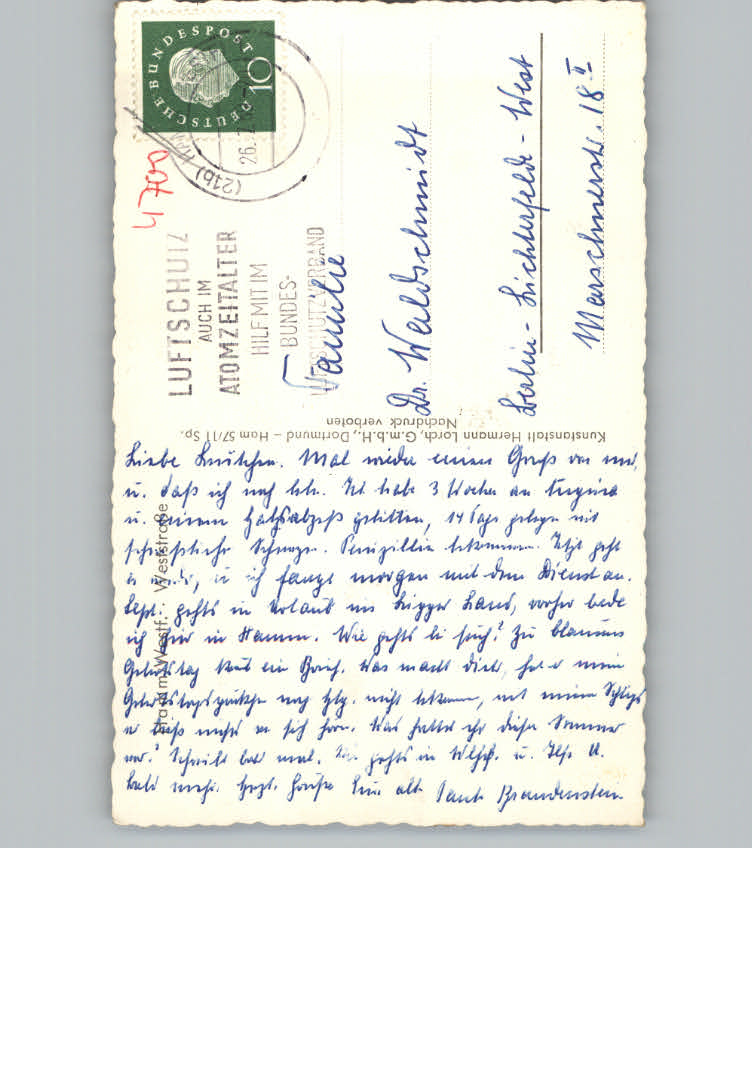 DEUTSCHE BUNDESPOST
10
(21b) HAM
26.
4700
LUFTSCHUTZ
AUCH IM
ATOMZEITALTER
HILF MIT IM
BUNDES-
LUFTSCHUTZVERBAND
Familie
Dr. Waldschmidt
Berlin-Lichterfelde-West
Marschnerstr. 18 II
Kunstanstalt Hermann Lorch, G.m.b.H., Dortmund – Ham 57/11 Sp.
Nachdruck verboten
Hamm Westf. Weststraße
Liebe Leutchen. Mal wieder einen Gruß von mir,
u. daß ich noch lebe. Ich habe 3 Wochen an Angina
u. einem Halsabszeß gelitten, 14 Tage gelegen mit
scheußliche Schmerzen. Penizillin bekommen. Jetzt geht
es wieder, u. ich fange morgen mit dem Dienst an.
Sept. gehts in Urlaub ins Lipper Land, vorher bade
ich hier in Hamm. Wie gehts bei Euch? Zu
Geburtstag ein Brief. Was macht Dieter, hat er mein
noch nicht bekommen, mit meinem Schlips
er ließ nichts von sich hören. Was hattet ihr diesen Sommer
vor? Schreibt bald mal. Wie gehts in u.
Bald mehr. Herzl. Grüße Eure alte Tante Brandenstein.